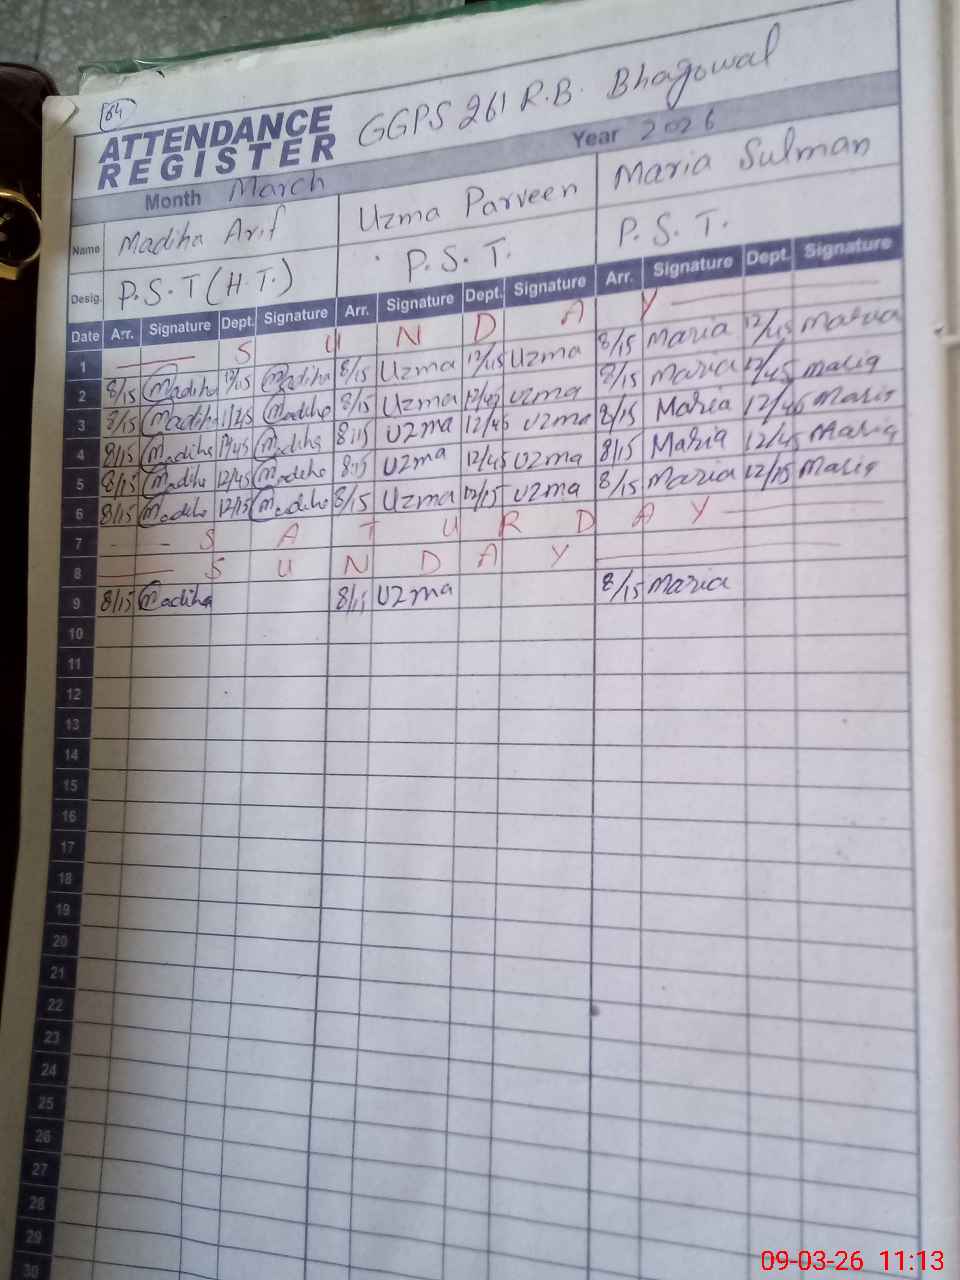 64
ATTENDANCE REGISTER GGPS 261 R.B. Bhagowal
Month March Year 2026
Name Madiha Arif Uzma Parveen Maria Sulman
Desig. P.S.T (H.T.) P.S.T. P.S.T.
Date Arr. Signature Dept. Signature Arr. Signature Dept. Signature Arr. Signature Dept. Signature
1 S U N D A Y
2 8/15 Madiha 12/45 Madiha 8/15 Uzma 12/45 Uzma 8/15 Maria 12/45 Maria
3 8/15 Madiha 12/45 Madiha 8/15 Uzma Uzma 8/15 Maria 12/45 Maria
4 8/15 Madiha Madiha 8:15 Uzma 12/45 Uzma 8/15 Maria 12/45 Maria
5 8/15 Madiha 12/45 Madiha 8:15 Uzma 12/45 Uzma 8/15 Maria 12/45 Maria
6 8/15 Madiha 12/15 Madiha 8/15 Uzma 12/15 Uzma 8/15 Maria 12/15 Maria
7 S A T U R D A Y
8 S U N D A Y
9 8/15 Madiha Uzma 8/15 Maria
10
11
12
13
14
15
16
17
18
19
20
21
22
23
24
25
26
27
28
29
30
09-03-26 11:13